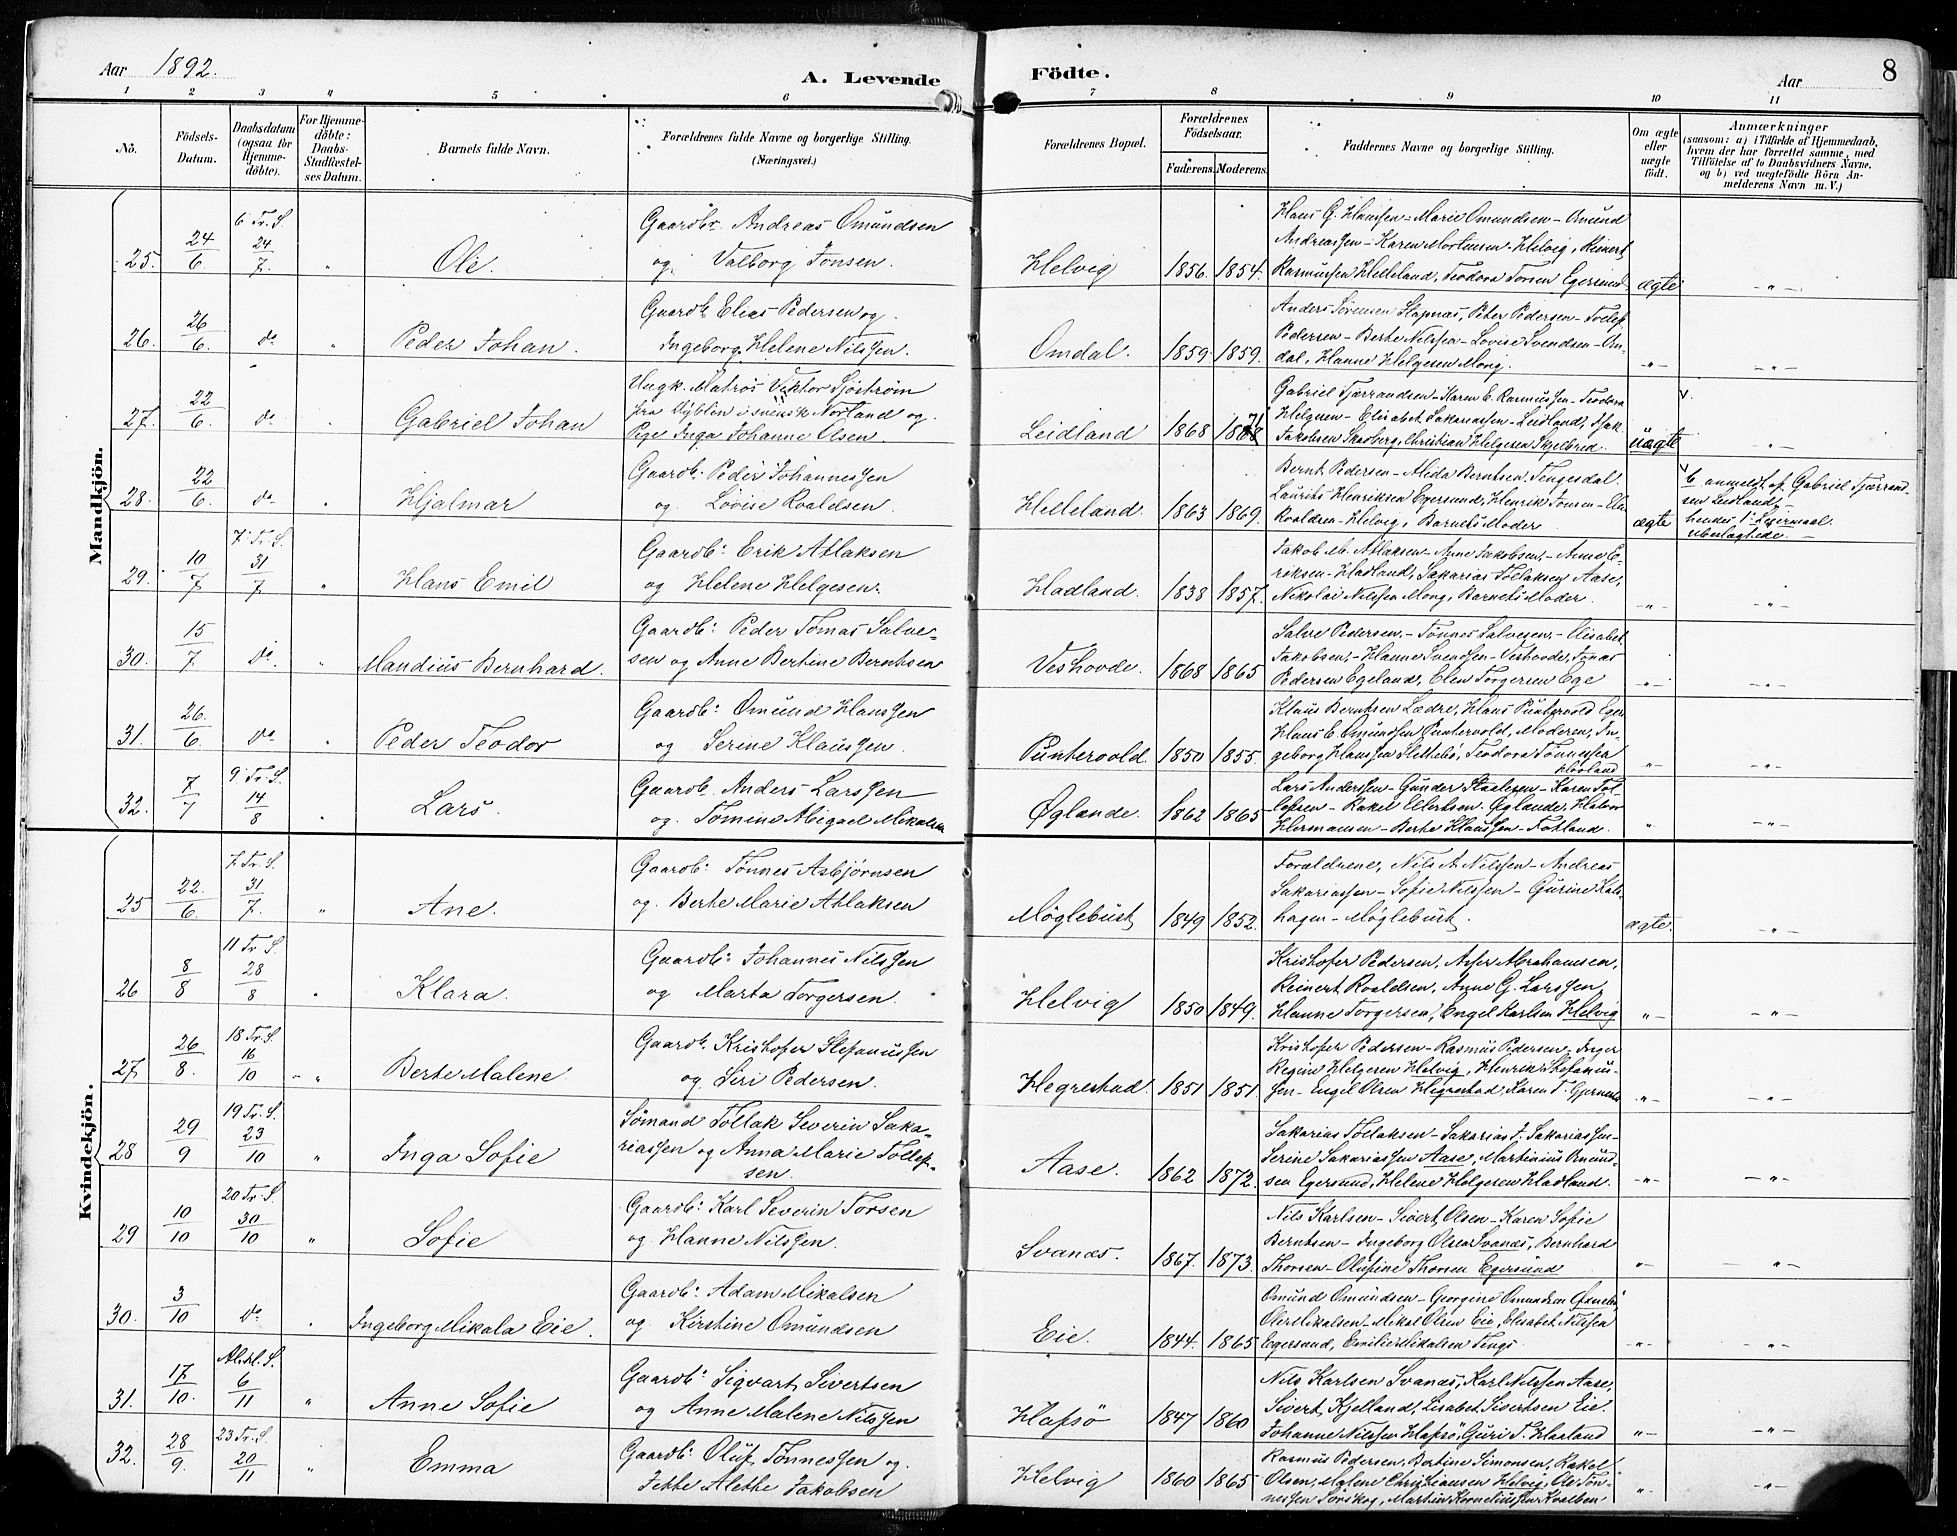 Aar 1892.
A. Levende
Födte.
Aar
8
1 2 3 4 5 6 7 8 9 10 11
No.
Födsels-Datum.
Daabsdatum (ogsaa for Hjemme-döbte).
For Hjemme-döbte: Daabs-Stadfæstel-ses Datum.
Barnets fulde Navn.
Forældrenes fulde Navne og borgerlige Stilling. (Næringsvei.)
Forældrenes Bopæl.
Forældrenes Födselsaar.
Faderens. Moderens.
Faddernes Navne og borgerlige Stilling.
Om ægte eller uægte födt.
Anmærkninger
(saasom: a) i Tilfælde af Hjemmedaab, hvem der har forrettet samme, med Tilföielse af to Daabsvidners Navne, og b) ved uægtefödte Börn An-melderens Navn m. V.)
Mandkjön.
25. 24/6 6. Tr. S. 24/7 " Ole. Gaardbr. Andreas Omundsen
og Valborg Tonsen. Helvig 1856. 1854.
Hans G. Hanssen - Marie Omundsen - Omund
Andreassen - Karen Mortensen - Helvig, Reinert
Rasmussen Helleland, Teodora Egersund. ægte -"-
26. 26/6. do " Peder Johan. Gaardb. Elias Pedersen og
Ingeborg Helene Nilssen. Omdal. 1859. 1859.
Anders Sørensen Slapnæs, Peter Pedersen - Tollef
Pedersen - Berte Nilssen - Lovise Svendsen - Om-
dal, Hanne Helgesen Mong. -"- -"-
27. 22/6. do Gabriel Johan Ungk. Matros Viktor Sjöström
fra i svensk Norland og
Pige Inga Johanne Olsen. Leidland 1868 1871
Gabriel Tjærrandsen - Karen E. Rasmussen - Teodora
Helgesen - Elisabet Sakariassen - Leidland, Isak
Jakobsen Skadberg, Christian Helgesen Skjelbred. uægte v. -"-
28. 22/6. do Hjalmar Gaardb. Peder Johannessen
og Lovise Roaldsen. Helleland. 1863 1869.
Bernt Pedersen - Alida Berntsen, Tengesdal.
Laurits Henriksen Egersund, Henrik Tonsen -
Roaldsen - Helvig, Barnets Moder. ægte
v b anmeldt af Gabriel Tjærrand-
sen Leidland,
hendes 1. Leiermaal.
29. 10/7 7. Tr. S. 31/7 " Hans Emil Gaardb: Erik Atlaksen
og Helene Helgesen. Hadland. 1838 1857.
Jakob M. Atlaksen - Anne Jakobsen, - Anne E-
riksen - Hadland, Sakarias Tollaksen Aase,
Nikolai Nilssen Mong, Barnets Moder. -"- -"-
30. 15/7 do. " Mandius Bernhard. Gaardb: Peder Tomas Salve-
sen og Anne Bertine Berntsen Veshovde. 1868 1865
Salve Pedersen, - Tönnes Salvesen, - Elisabet
Jakobsen, - Hanne Svendsen - Veshovde, Jonas
Pedersen Egeland, Elen Torgersen Ege -"- -"-
31. 26./6. do " Peder Teodor Gaardb: Omund Hanssen
og Serine Klaussen. Puntervold. 1850 1855.
Klaus Berntsen Lædre, Hans Puntervold Eger.
Hans E. Omundsen Puntervold, Moderen, In-
geborg Hanssen Slettebö, Teodora Tönnessen
Hovland -"- -"-
32. 7/7 9. Tr. S. 14/8 " Lars. Gaardb. Anders Larssen
og Tomine Abigael Mikalsen Øglænde. 1862 1865
Lars Anderssen - Gunder Staalesen - Karen Tol-
lefsen - Rakel Ellertsen. Øglænde, Halvor
Hermansen - Berte Klaussen - Fotland. " -"-
Kvindekjön.
25 22./6. 7. Tr. S. 31/7. " Ane. Gaardb: Tönnes Asbjörnsen
og. Berte Marie Atlaksen Möglebust 1849 1852.
Forældrene, Nils A. Nilssen - Andreas
Sakariassen - Sofie Nilssen - Gurine Kals-
hagen - Möglebust. ægte. -"-
26 8/8 11 Tr. S. 28/8 " Klara. Gaardb: Johannes Nilssen
og Marta Torgersen. Helvig 1850 1849.
Kristofer Pedersen, Abrahamsen,
Reinert Roaldsen, Anne G. Larssen,
Hanne Torgersen, Engel Karlsen Helvig " -"-
27 26/8. 18 Tr. S. 16/10 -" Berte Malene Gaardb. Kristofer Stefanussen
og Siri Pedersen. Hegrestad. 1851 1851.
Kristofer Pedersen - Rasmus Pedersen, Inger
Regine Helgesen Helvig, Henrik Stefanus-
sen - Engel Olsen Hegrestad, Karen T. -"- -"-
28 29/9 19 Tr. S. 23/10 " Inga Sofie Sömand Tollak Severin Saka-
riassen og Anna Marie Tollef-
sen. Aase. 1862 1872.
Sakarias Tollaksen - Sakarias T. Sakariassen -
Serine Sakariassen Aase, Martinius Omund-
sen Egersund, Helene Helgesen Hadland. -"- -"-
29 10/10 20 Tr. S. 30/10 " Sofie Gaardb: Karl Severin Torsen
og Hanne Nilssen. Svanæs. 1867. 1873.
Nils Karlsen - Sivert Olsen - Karen Sofie
Berntsen - Ingeborg Olsen Svanæs, Bernhard
Thorsen - Olufine Thorsen Egersund "- -"-
30. 3/10 do " Ingeborg Mikala Eie. Gaardb: Adam Mikalsen
og. Kirstine Omundsen Eie. 1844. 1865
Omund Omundsen - Georgine Omundsen
Ole Mikalsen - Mikal Olsen Eie, Elisabet Nilssen
Egersund, Emilie Mikalsen Tengs. -"- -"-
31. 17/10. Alehl. S. 6/11 " Anne Sofie Gaardb: Sigvart Sivertsen
og Anne Malene Nilssen Hafsö 1847 1860
Nils Karlsen Svanæs, Karl Nilssen Aase,
Sivert Kjelland, Lisabet Sivertsen Eie.
Johanne Nilssen Hafsö, Guri T. Harland "- -"-
32. 28/9. 23 Tr. S. 20/11 " Emma Gaardb: Oluf Tönnessen og
Jette Alethe Jakobsen Helvig 1860 1865
Rasmus Pedersen, Bertine Simonsen, Rakel
Olsen, Malene Christiansen Helvig, Ole Tön-
nessen Torskog, Martin Korneliussen Kvalben. "- -"-